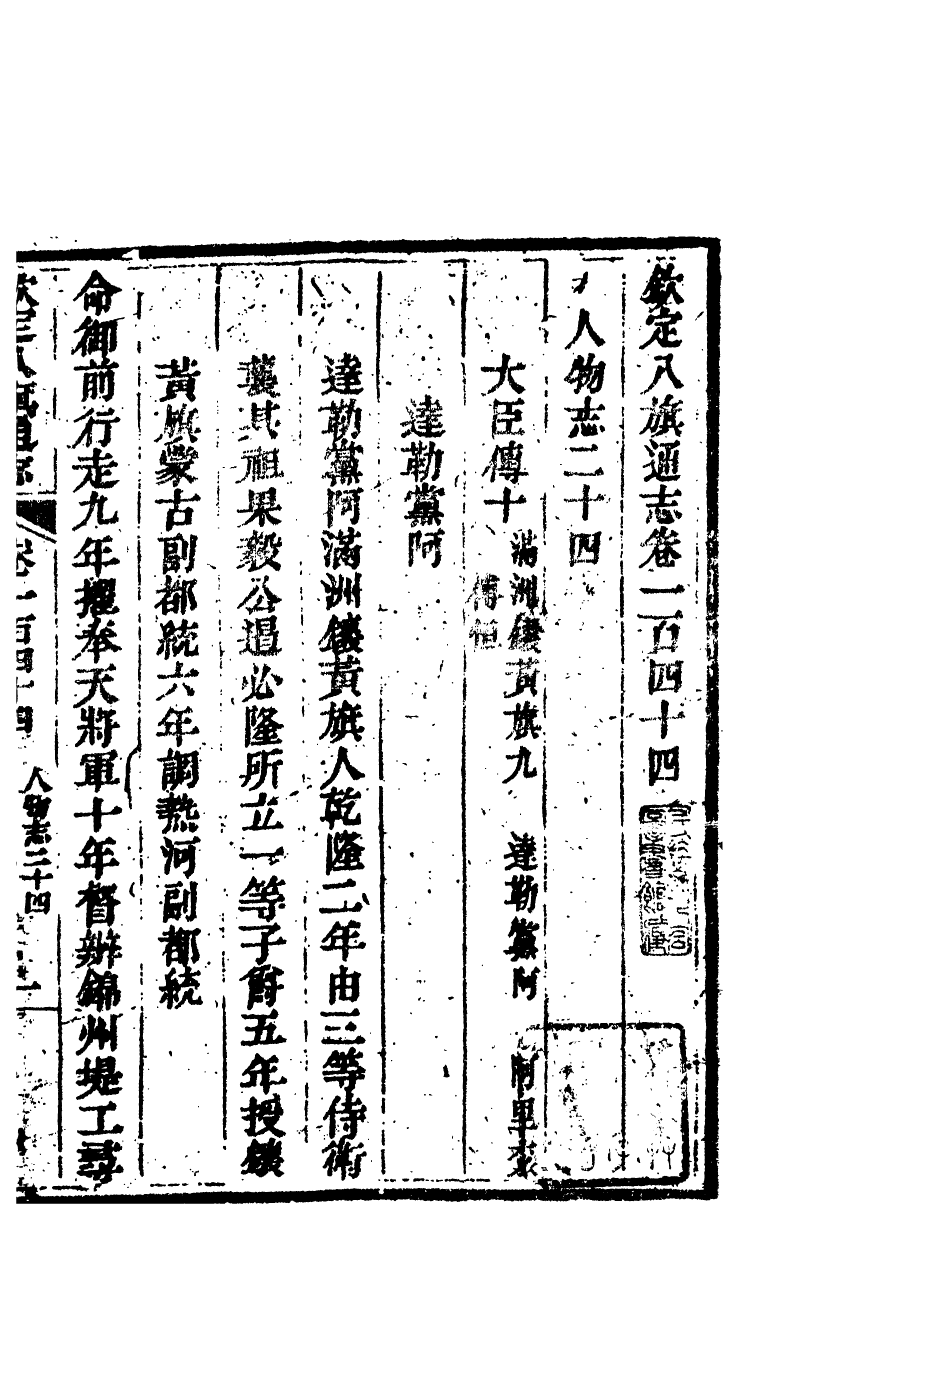 欽定八旗通志卷一百四十四
人物志二十四
大臣傳十 滿洲鑲黃旗九 達勒黨阿 阿里袞
傅恒
達勒黨阿
達勒黨阿滿洲鑲黃旗人乾隆二年由三等侍衛
襲其祖果毅公遏必隆所立一等子爵五年授鑲
黃旗蒙古副都統六年調熱河副都統
命御前行走九年擢奉天將軍十年督辦錦州堤工尋
欽定八旗通志 卷一百四十四 人物志二十四 一